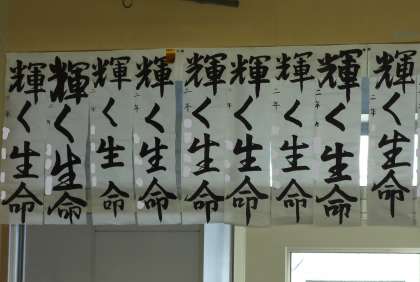 輝く生命
輝く生命
輝く生命
輝く生命
輝く生命
輝く生命
輝く生命
輝く生命
輝く生命